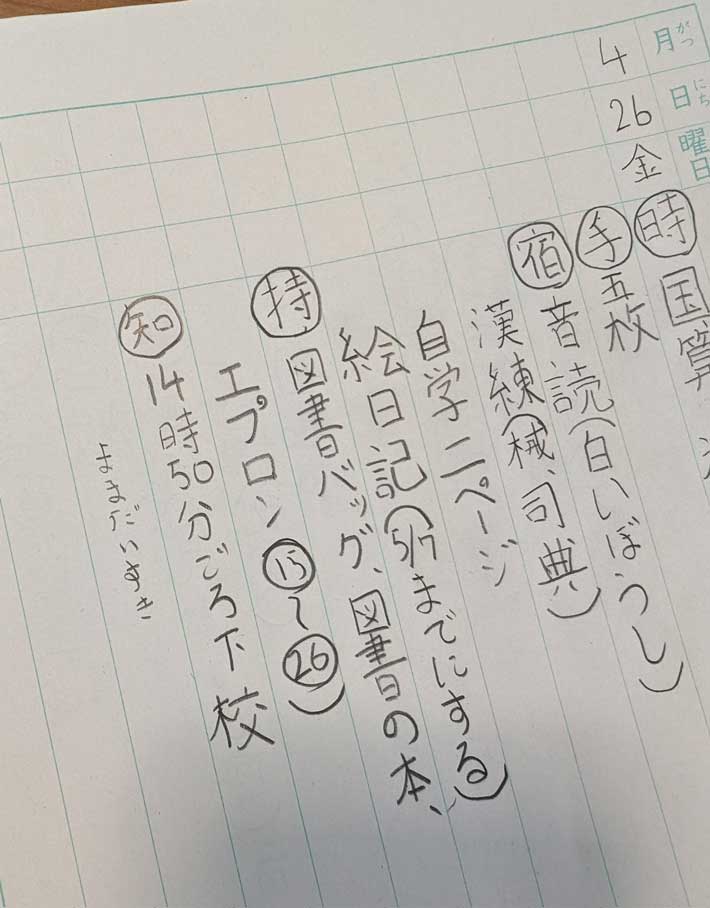 4月26日金曜日
がつ
にち
時 国、算
手 五枚
宿 音読(白いぼうし)
漢練(械、司、典)
自学二ページ
絵日記(5/7までにする)
持 図書バッグ、図書の本、
エプロン(⑮~㉖)
知 14時50分ごろ下校